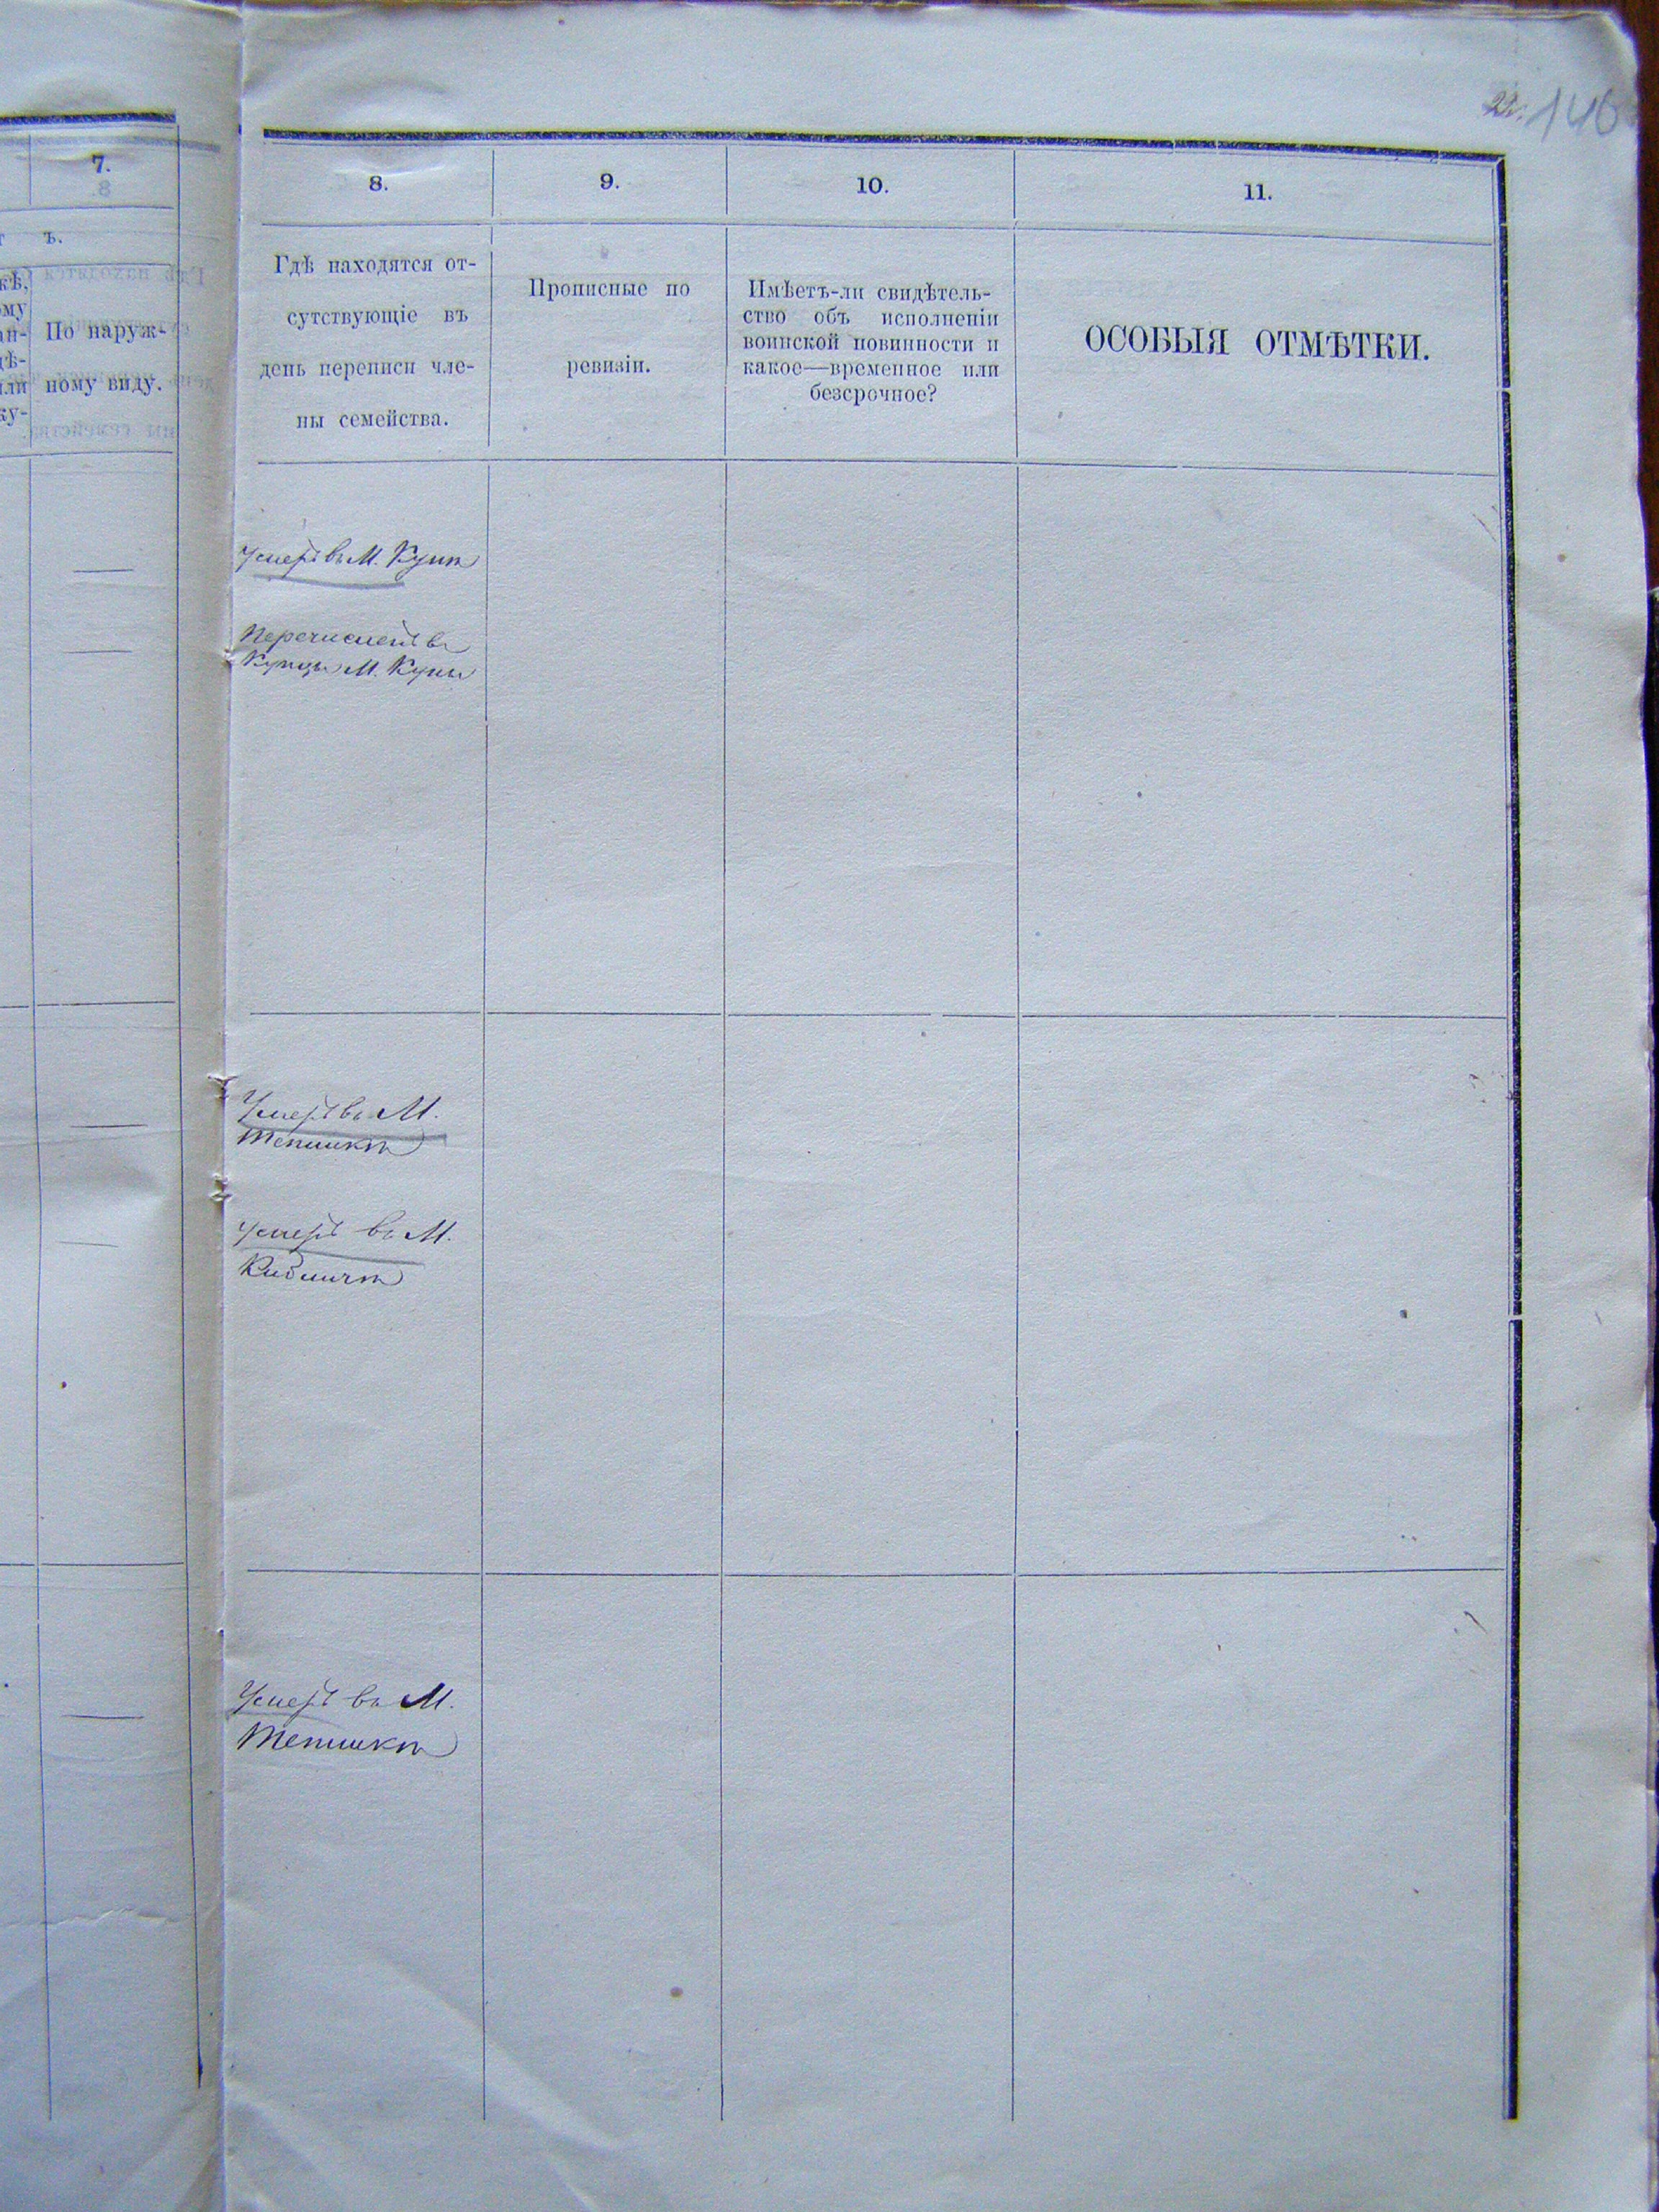 146
7.
ъ.
По наруж-
ному виду.
8.
9.
10.
11.
Гдѣ находятся от-
сутствующіе въ
день переписи чле-
ны семейства.
Прописные по
ревизіи.
Имѣетъ-ли свидѣтель-
ство объ исполненіи
воинской повинности и
какое—временное или
безсрочное?
ОСОБЫЯ ОТМѢТКИ.
Умеръ въ М. Купѣ
Перечисленъ въ
Купцы М. Купы
Умеръ въ М.
Тепликѣ
Умеръ въ М.
Умеръ въ М.
Тепликѣ